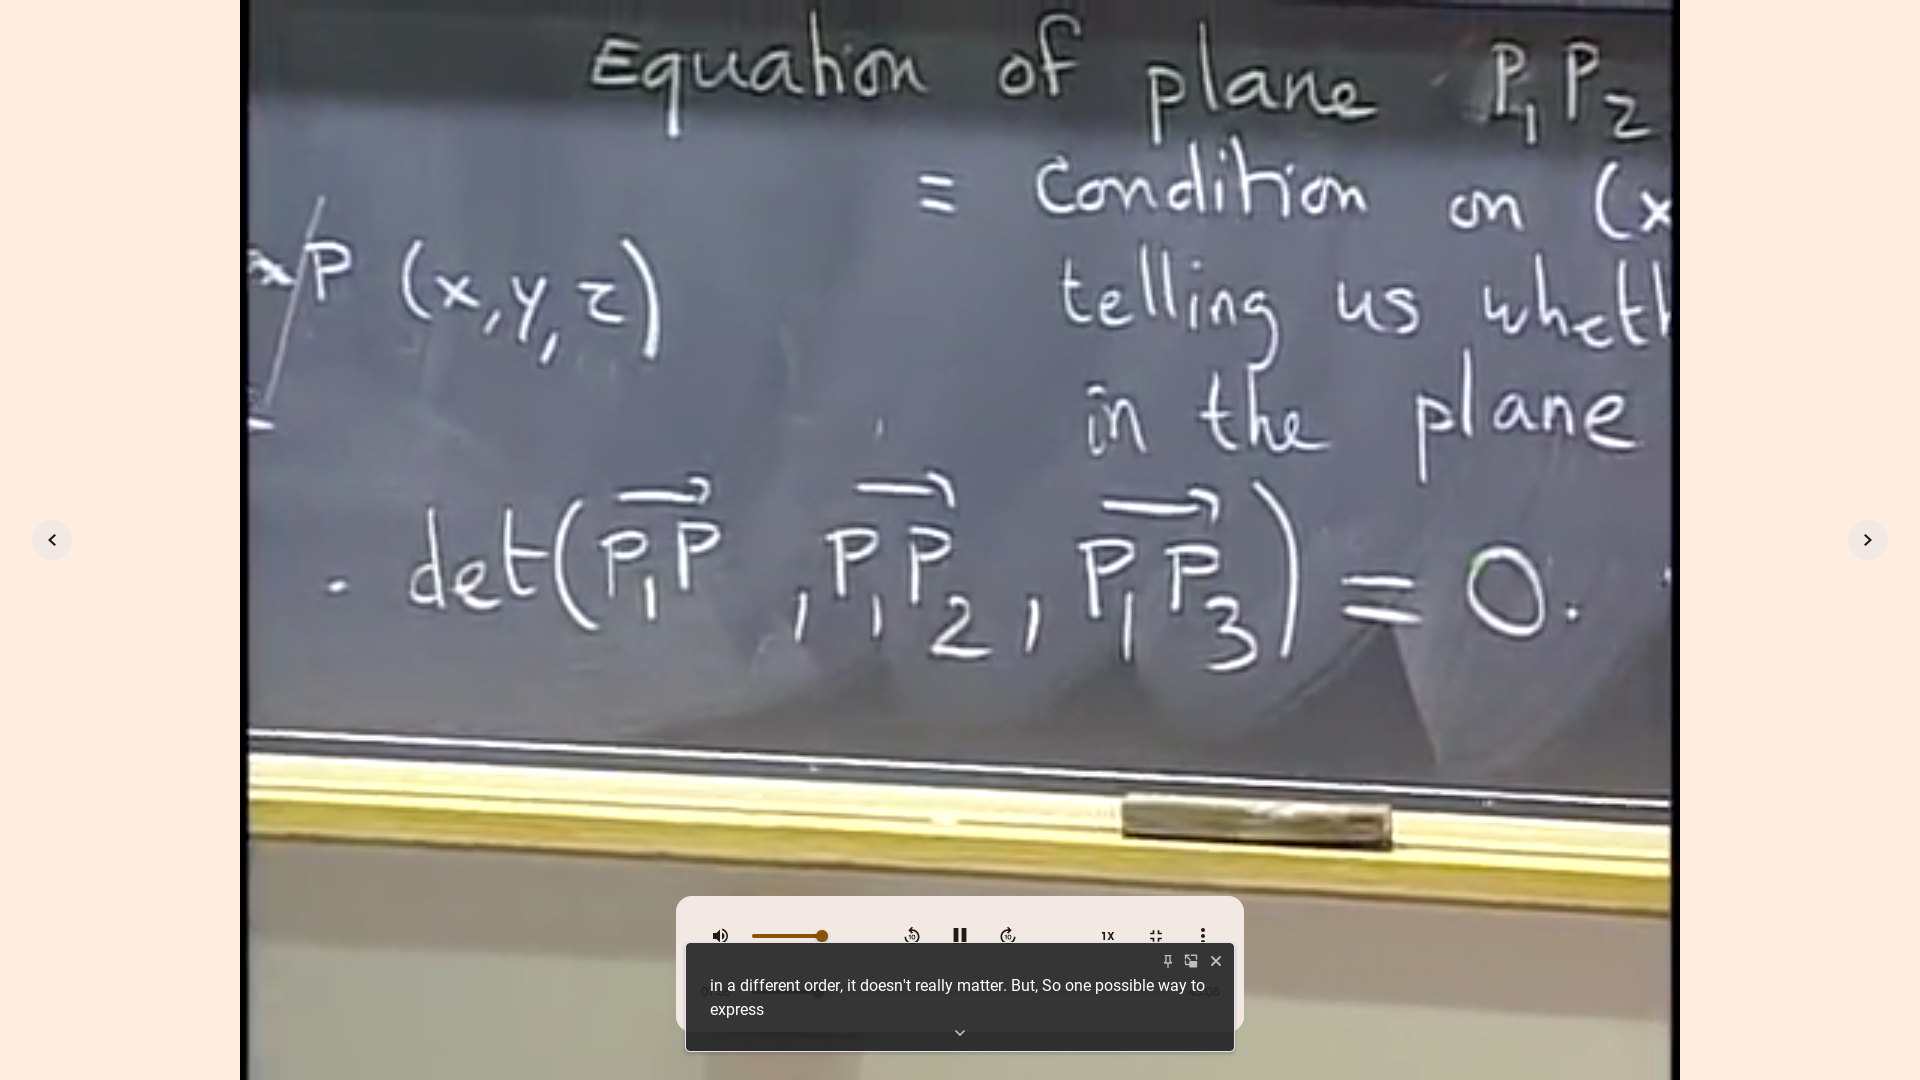 Equation of plane P₁P₂
= Condition on (x
telling us wheth
P (x,y,z)
in the plane
det(P₁P, P₁P₂, P₁P₃) = 0.
1X
in a different order, it doesn't really matter. But, So one possible way to
express